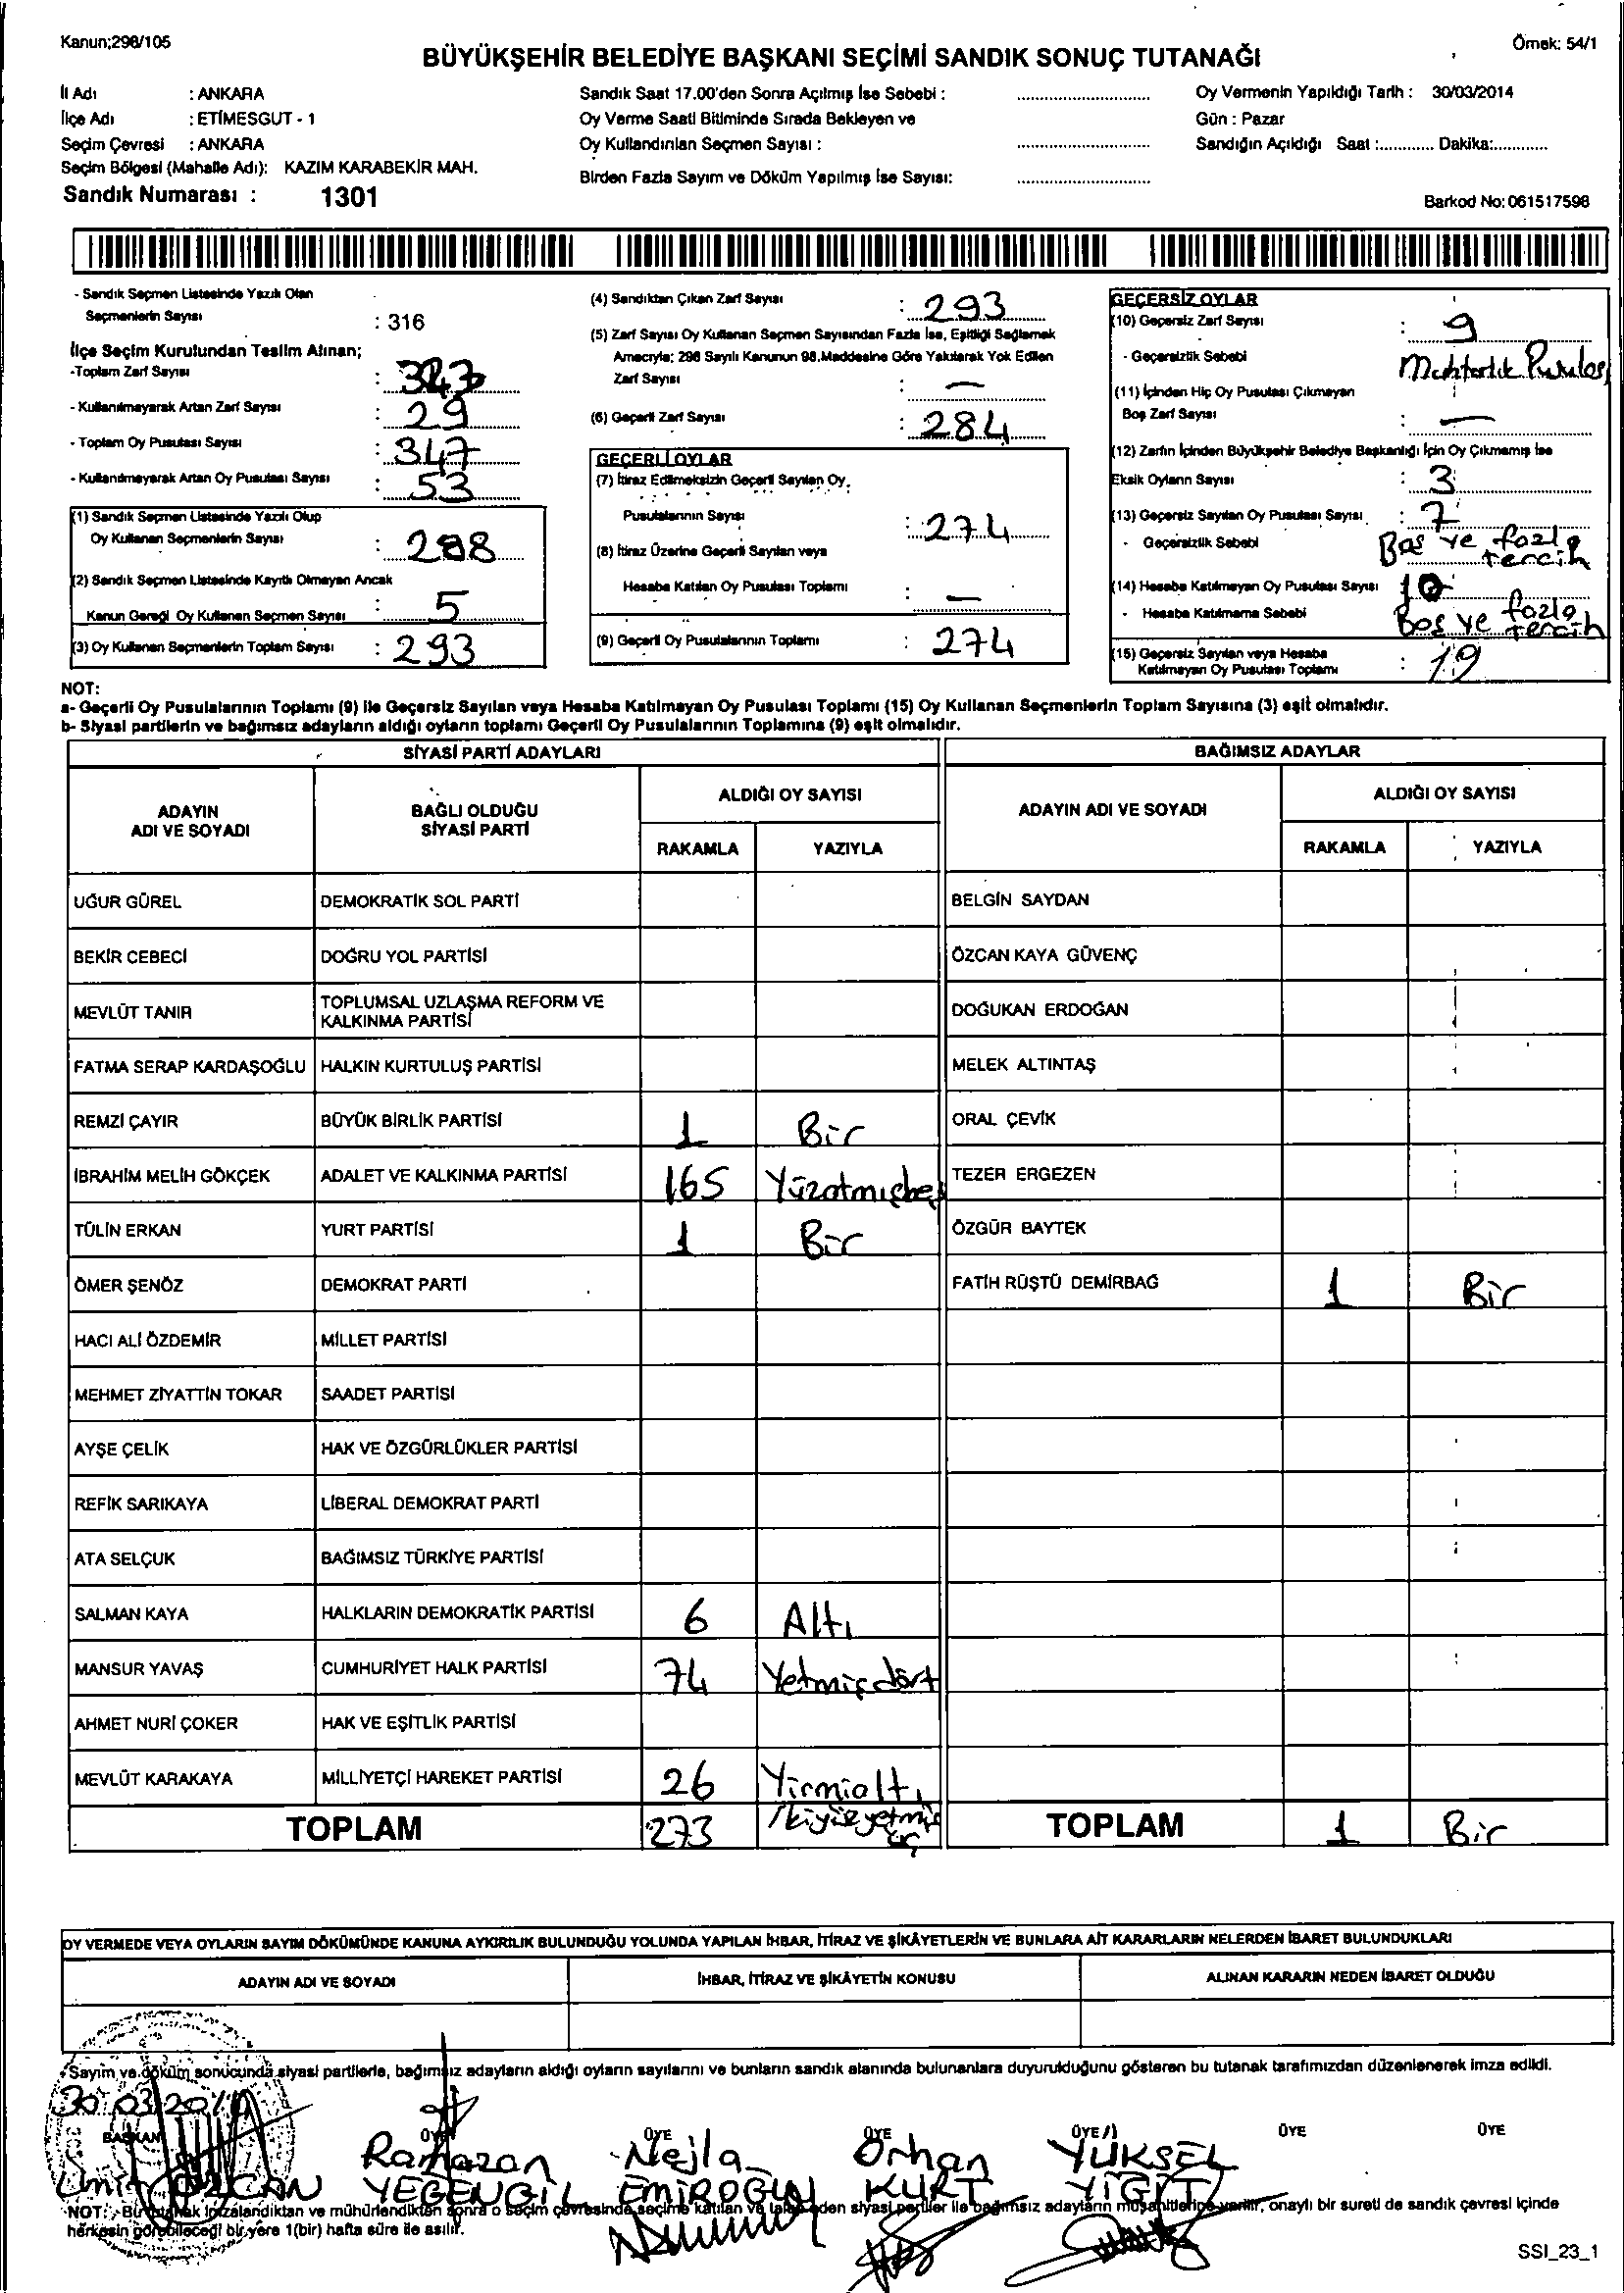 Kanun;298/105
Örnek: 54/1
BÜYÜKŞEHİR BELEDİYE BAŞKANI SEÇİMİ SANDIK SONUÇ TUTANAĞI
İl Adı : ANKARA
İlçe Adı : ETİMESGUT - 1
Seçim Çevresi : ANKARA
Seçim Bölgesi (Mahalle Adı): KAZIM KARABEKİR MAH.
Sandık Numarası : 1301
Sandık Saat 17.00'den Sonra Açılmış İse Sebebi :
Oy Verme Saati Bitiminde Sırada Bekleyen ve
Oy Kullandırılan Seçmen Sayısı :
Birden Fazla Sayım ve Döküm Yapılmış İse Sayısı:
Oy Vermenin Yapıldığı Tarih : 30/03/2014
Gün : Pazar
Sandığın Açıldığı Saat :............ Dakika:............
Barkod No:061517598
- Sandık Seçmen Listesinde Yazılı Olan
Seçmenlerin Sayısı : 316
İlçe Seçim Kurulundan Teslim Alınan;
-Toplam Zarf Sayısı :
- Kullanılmayarak Artan Zarf Sayısı : 29
- Toplam Oy Pusulası Sayısı : 347
- Kullanılmayarak Artan Oy Pusulası Sayısı : 53
(1) Sandık Seçmen Listesinde Yazılı Olup
Oy Kullanan Seçmenlerin Sayısı : 288
(2) Sandık Seçmen Listesinde Kayıtlı Olmayan Ancak
Kanun Gereği Oy Kullanan Seçmen Sayısı : 5
(3) Oy Kullanan Seçmenlerin Toplam Sayısı : 293
(4) Sandıktan Çıkan Zarf Sayısı : 293
(5) Zarf Sayısı Oy Kullanan Seçmen Sayısından Fazla İse, Eşitliği Sağlamak
Amacıyla; 298 Sayılı Kanunun 98.Maddesine Göre Yakılarak Yok Edilen
Zarf Sayısı : —
(6) Geçerli Zarf Sayısı : 284
GEÇERLİ OYLAR
(7) İtiraz Edilmeksizin Geçerli Sayılan Oy
Pusulalarının Sayısı : 274
(8) İtiraz Üzerine Geçerli Sayılan veya
Hesaba Katılan Oy Pusulası Toplamı : —
(9) Geçerli Oy Pusulalarının Toplamı : 274
GEÇERSİZ OYLAR
(10) Geçersiz Zarf Sayısı : 9
- Geçersizlik Sebebi Muhtarlık Pusulası
(11) İçinden Hiç Oy Pusulası Çıkmayan
Boş Zarf Sayısı : —
(12) Zarfın İçinden Büyükşehir Belediye Başkanlığı İçin Oy Çıkmamış İse
Eksik Oyların Sayısı : 3
(13) Geçersiz Sayılan Oy Pusulası Sayısı : 7
- Geçersizlik Sebebi Boş ve fazla
tercih
(14) Hesaba Katılmayan Oy Pusulası Sayısı 10
- Hesaba Katılmama Sebebi Boş ve fazla
tercih
(15) Geçersiz Sayılan veya Hesaba
Katılmayan Oy Pusulası Toplamı : 19
NOT:
a- Geçerli Oy Pusulalarının Toplamı (9) ile Geçersiz Sayılan veya Hesaba Katılmayan Oy Pusulası Toplamı (15) Oy Kullanan Seçmenlerin Toplam Sayısına (3) eşit olmalıdır.
b- Siyasi partilerin ve bağımsız adayların aldığı oyların toplamı Geçerli Oy Pusulalarının Toplamına (9) eşit olmalıdır.
SİYASİ PARTİ ADAYLARI
BAĞIMSIZ ADAYLAR
ADAYIN ADI VE SOYADI
BAĞLI OLDUĞU SİYASİ PARTİ
ALDIĞI OY SAYISI
RAKAMLA YAZIYLA
ADAYIN ADI VE SOYADI
ALDIĞI OY SAYISI
RAKAMLA YAZIYLA
UĞUR GÜREL DEMOKRATİK SOL PARTİ BELGİN SAYDAN
BEKİR CEBECİ DOĞRU YOL PARTİSİ ÖZCAN KAYA GÜVENÇ
MEVLÜT TANIR TOPLUMSAL UZLAŞMA REFORM VE KALKINMA PARTİSİ DOĞUKAN ERDOĞAN
FATMA SERAP KARDAŞOĞLU HALKIN KURTULUŞ PARTİSİ MELEK ALTINTAŞ
REMZİ ÇAYIR BÜYÜK BİRLİK PARTİSİ 1 Bir ORAL ÇEVİK
İBRAHİM MELİH GÖKÇEK ADALET VE KALKINMA PARTİSİ 165 Yüzatmışbeş TEZER ERGEZEN
TÜLİN ERKAN YURT PARTİSİ 1 Bir ÖZGÜR BAYTEK
ÖMER ŞENÖZ DEMOKRAT PARTİ FATİH RÜŞTÜ DEMİRBAĞ 1 Bir
HACI ALİ ÖZDEMİR MİLLET PARTİSİ
MEHMET ZİYATTİN TOKAR SAADET PARTİSİ
AYŞE ÇELİK HAK VE ÖZGÜRLÜKLER PARTİSİ
REFİK SARIKAYA LİBERAL DEMOKRAT PARTİ
ATA SELÇUK BAĞIMSIZ TÜRKİYE PARTİSİ
SALMAN KAYA HALKLARIN DEMOKRATİK PARTİSİ 6 Altı
MANSUR YAVAŞ CUMHURİYET HALK PARTİSİ 74 Yetmişdört
AHMET NURİ ÇOKER HAK VE EŞİTLİK PARTİSİ
MEVLÜT KARAKAYA MİLLİYETÇİ HAREKET PARTİSİ 26 Yirmialtı
TOPLAM 273 İkiyüzyetmiş üç TOPLAM 1 Bir
OY VERMEDE VEYA OYLARIN SAYIM DÖKÜMÜNDE KANUNA AYKIRILIK BULUNDUĞU YOLUNDA YAPILAN İHBAR, İTİRAZ VE ŞİKÂYETLERİN VE BUNLARA AİT KARARLARIN NELERDEN İBARET BULUNDUKLARI
ADAYIN ADI VE SOYADI İHBAR, İTİRAZ VE ŞİKÂYETİN KONUSU ALINAN KARARIN NEDEN İBARET OLDUĞU
Sayım ve döküm sonucunda siyasi partilerle, bağımsız adayların aldığı oyların sayılarını ve bunların sandık alanında bulunanlara duyurulduğunu gösteren bu tutanak tarafımızdan düzenlenerek imza edildi.
30.03.2014
BAŞKAN ÜYE ÜYE ÜYE ÜYE ÜYE ÜYE
Ümit ÖZCAN
Ramazan YEĞENGİL
Nejla EMİROĞLU
Orhan KURT
YÜKSEL YİĞİT
NOT: Bir tutanak imzalandıktan ve mühürlendikten sonra o seçim çevresinde seçime katılan ve talep eden siyasi partiler ile bağımsız adayların müşahitlerine verilir, onaylı bir sureti de sandık çevresi içinde
herkesin görebileceği bir yere 1(bir) hafta süre ile asılır.
SSI_23_1